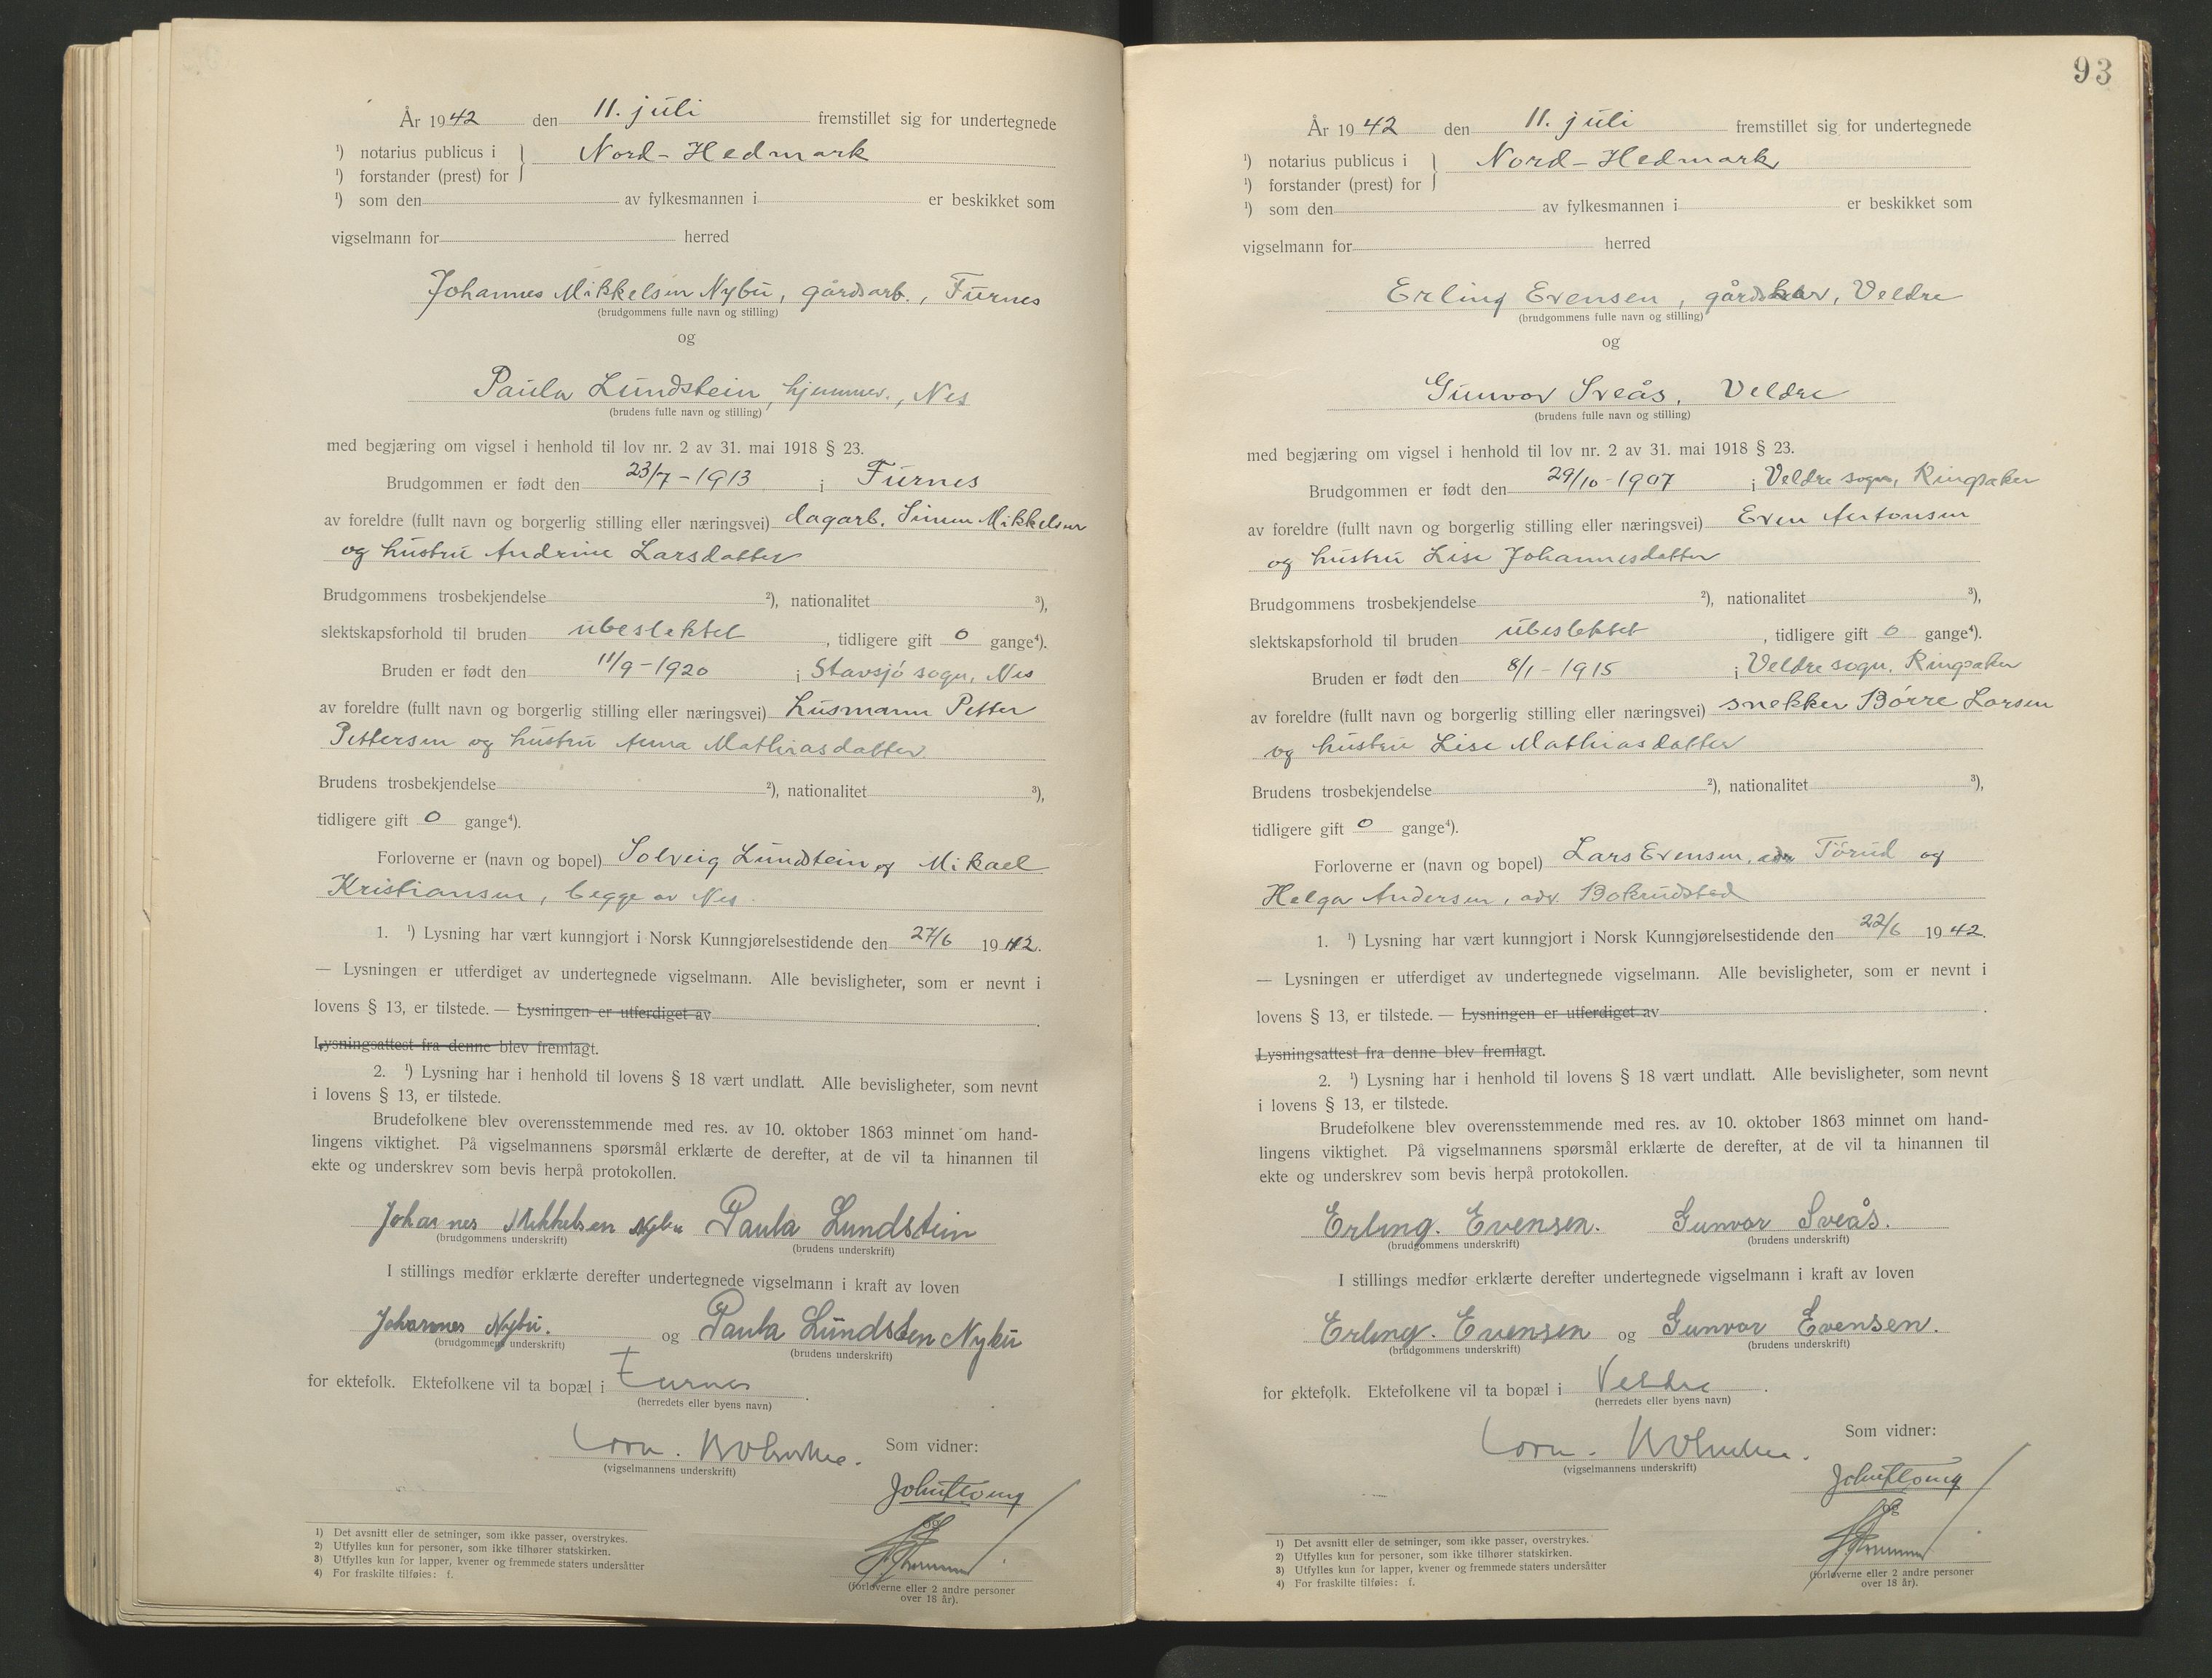 År 1942 den 11. juli fremstillet sig for undertegnede
¹) notarius publicus i } Nord-Hedmark
¹) forstander (prest) for
¹) som den av fylkesmannen i er beskikket som
vigselmann for herred
Johannes Mikkelsen Nybu, gårdsarb., Furnes
(brudgommens fulle navn og stilling)
og
Paula Lundstein, hjemmev., Nes
(brudens fulle navn og stilling)
med begjæring om vigsel i henhold til lov nr. 2 av 31. mai 1918 § 23.
Brudgommen er født den 23/7-1913 i Furnes
av foreldre (fullt navn og borgerlig stilling eller næringsvei) dagarb. Simen Mikkelsen
og hustru Andrine Larsdatter
Brudgommens trosbekjendelse ²), nationalitet ³),
slektskapsforhold til bruden ubeslektet, tidligere gift 0 gange⁴).
Bruden er født den 11/9-1920 i Stavsjø sogn, Nes
av foreldre (fullt navn og borgerlig stilling eller næringsvei) husmann Petter
Pettersen og hustru Anna Mathiasdatter.
Brudens trosbekjendelse ²), nationalitet ³),
tidligere gift 0 gange⁴).
Forloverne er (navn og bopel) Solveig Lundstein og Mikael
Kristiansen, begge av Nes.
1. ¹) Lysning har vært kunngjort i Norsk Kunngjørelsestidende den 27/6 1942.
— Lysningen er utferdiget av undertegnede vigselmann. Alle bevisligheter, som er nevnt i
lovens § 13, er tilstede. — Lysningen er utferdiget av
Lysningsattest fra denne blev fremlagt.
2. ¹) Lysning har i henhold til lovens § 18 vært undlatt. Alle bevisligheter, som nevnt
i lovens § 13, er tilstede.
Brudefolkene blev overensstemmende med res. av 10. oktober 1863 minnet om hand-
lingens viktighet. På vigselmannens spørsmål erklærte de derefter, at de vil ta hinannen til
ekte og underskrev som bevis herpå protokollen.
Johannes Mikkelsen Nybu Paula Lundstein
(brudgommens underskrift) (brudens underskrift)
I stillings medfør erklærte derefter undertegnede vigselmann i kraft av loven
Johannes Nybu. og Paula Lundsten Nybu
(brudgommens underskrift) (brudens underskrift)
for ektefolk. Ektefolkene vil ta bopæl i Furnes.
(herredets eller byens navn)
Som vidner:
(vigselmannens underskrift)
og
(forloverne eller 2 andre personer
over 18 år).
1) Det avsnitt eller de setninger, som ikke passer, overstrykes.
2) Utfylles kun for personer, som ikke tilhører statskirken.
3) Utfylles kun for lapper, kvener og fremmede staters undersåtter
4) For fraskilte tilføies: f.
93
År 1942 den 11. juli fremstillet sig for undertegnede
¹) notarius publicus i } Nord-Hedmark
¹) forstander (prest) for
¹) som den av fylkesmannen i er beskikket som
vigselmann for herred
Erling Evensen, Veldre
(brudgommens fulle navn og stilling)
og
Gunvor Sveås, Veldre
(brudens fulle navn og stilling)
med begjæring om vigsel i henhold til lov nr. 2 av 31. mai 1918 § 23.
Brudgommen er født den 29/10-1907 i Veldre sogn, Ringsaker
av foreldre (fullt navn og borgerlig stilling eller næringsvei) Even Antonsen
og hustru Lise Johannesdatter
Brudgommens trosbekjendelse ²), nationalitet ³),
slektskapsforhold til bruden ubeslektet, tidligere gift 0 gange⁴).
Bruden er født den 8/1-1915 i Veldre sogn, Ringsaker
av foreldre (fullt navn og borgerlig stilling eller næringsvei) snekker Børre Larsen
og hustru Lise Mathiasdatter
Brudens trosbekjendelse ²), nationalitet ³),
tidligere gift 0 gange⁴).
Forloverne er (navn og bopel) Lars Evensen, adr. Torud og
Helga Andersen, adr. Bokrudstad
1. ¹) Lysning har vært kunngjort i Norsk Kunngjørelsestidende den 22/6 1942.
— Lysningen er utferdiget av undertegnede vigselmann. Alle bevisligheter, som er nevnt i
lovens § 13, er tilstede. — Lysningen er utferdiget av
Lysningsattest fra denne blev fremlagt.
2. ¹) Lysning har i henhold til lovens § 18 vært undlatt. Alle bevisligheter, som nevnt
i lovens § 13, er tilstede.
Brudefolkene blev overensstemmende med res. av 10. oktober 1863 minnet om hand-
lingens viktighet. På vigselmannens spørsmål erklærte de derefter, at de vil ta hinannen til
ekte og underskrev som bevis herpå protokollen.
Erling. Evensen. Gunvor Sveås.
(brudgommens underskrift) (brudens underskrift)
I stillings medfør erklærte derefter undertegnede vigselmann i kraft av loven
Erling. Evensen og Gunvor Evensen.
(brudgommens underskrift) (brudens underskrift)
for ektefolk. Ektefolkene vil ta bopæl i Veldre.
(herredets eller byens navn)
Som vidner:
(vigselmannens underskrift)
og
(forloverne eller 2 andre personer
over 18 år).
1) Det avsnitt eller de setninger, som ikke passer, overstrykes.
2) Utfylles kun for personer, som ikke tilhører statskirken.
3) Utfylles kun for lapper, kvener og fremmede staters undersåtter
4) For fraskilte tilføies: f.